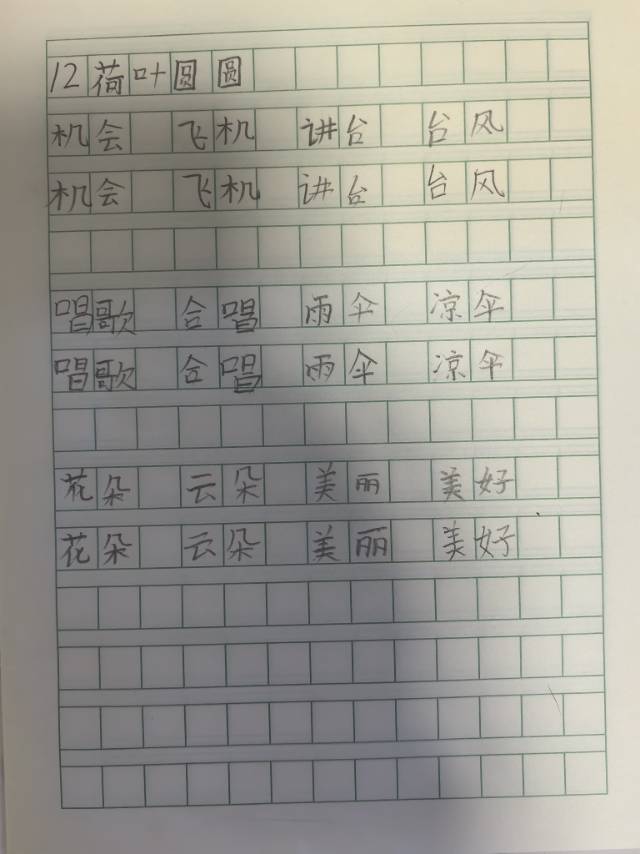 12荷叶圆圆
机会 飞机 讲台 台风
机会 飞机 讲台 台风
唱歌 合唱 雨伞 凉伞
唱歌 合唱 雨伞 凉伞
花朵 云朵 美丽 美好
花朵 云朵 美丽 美好